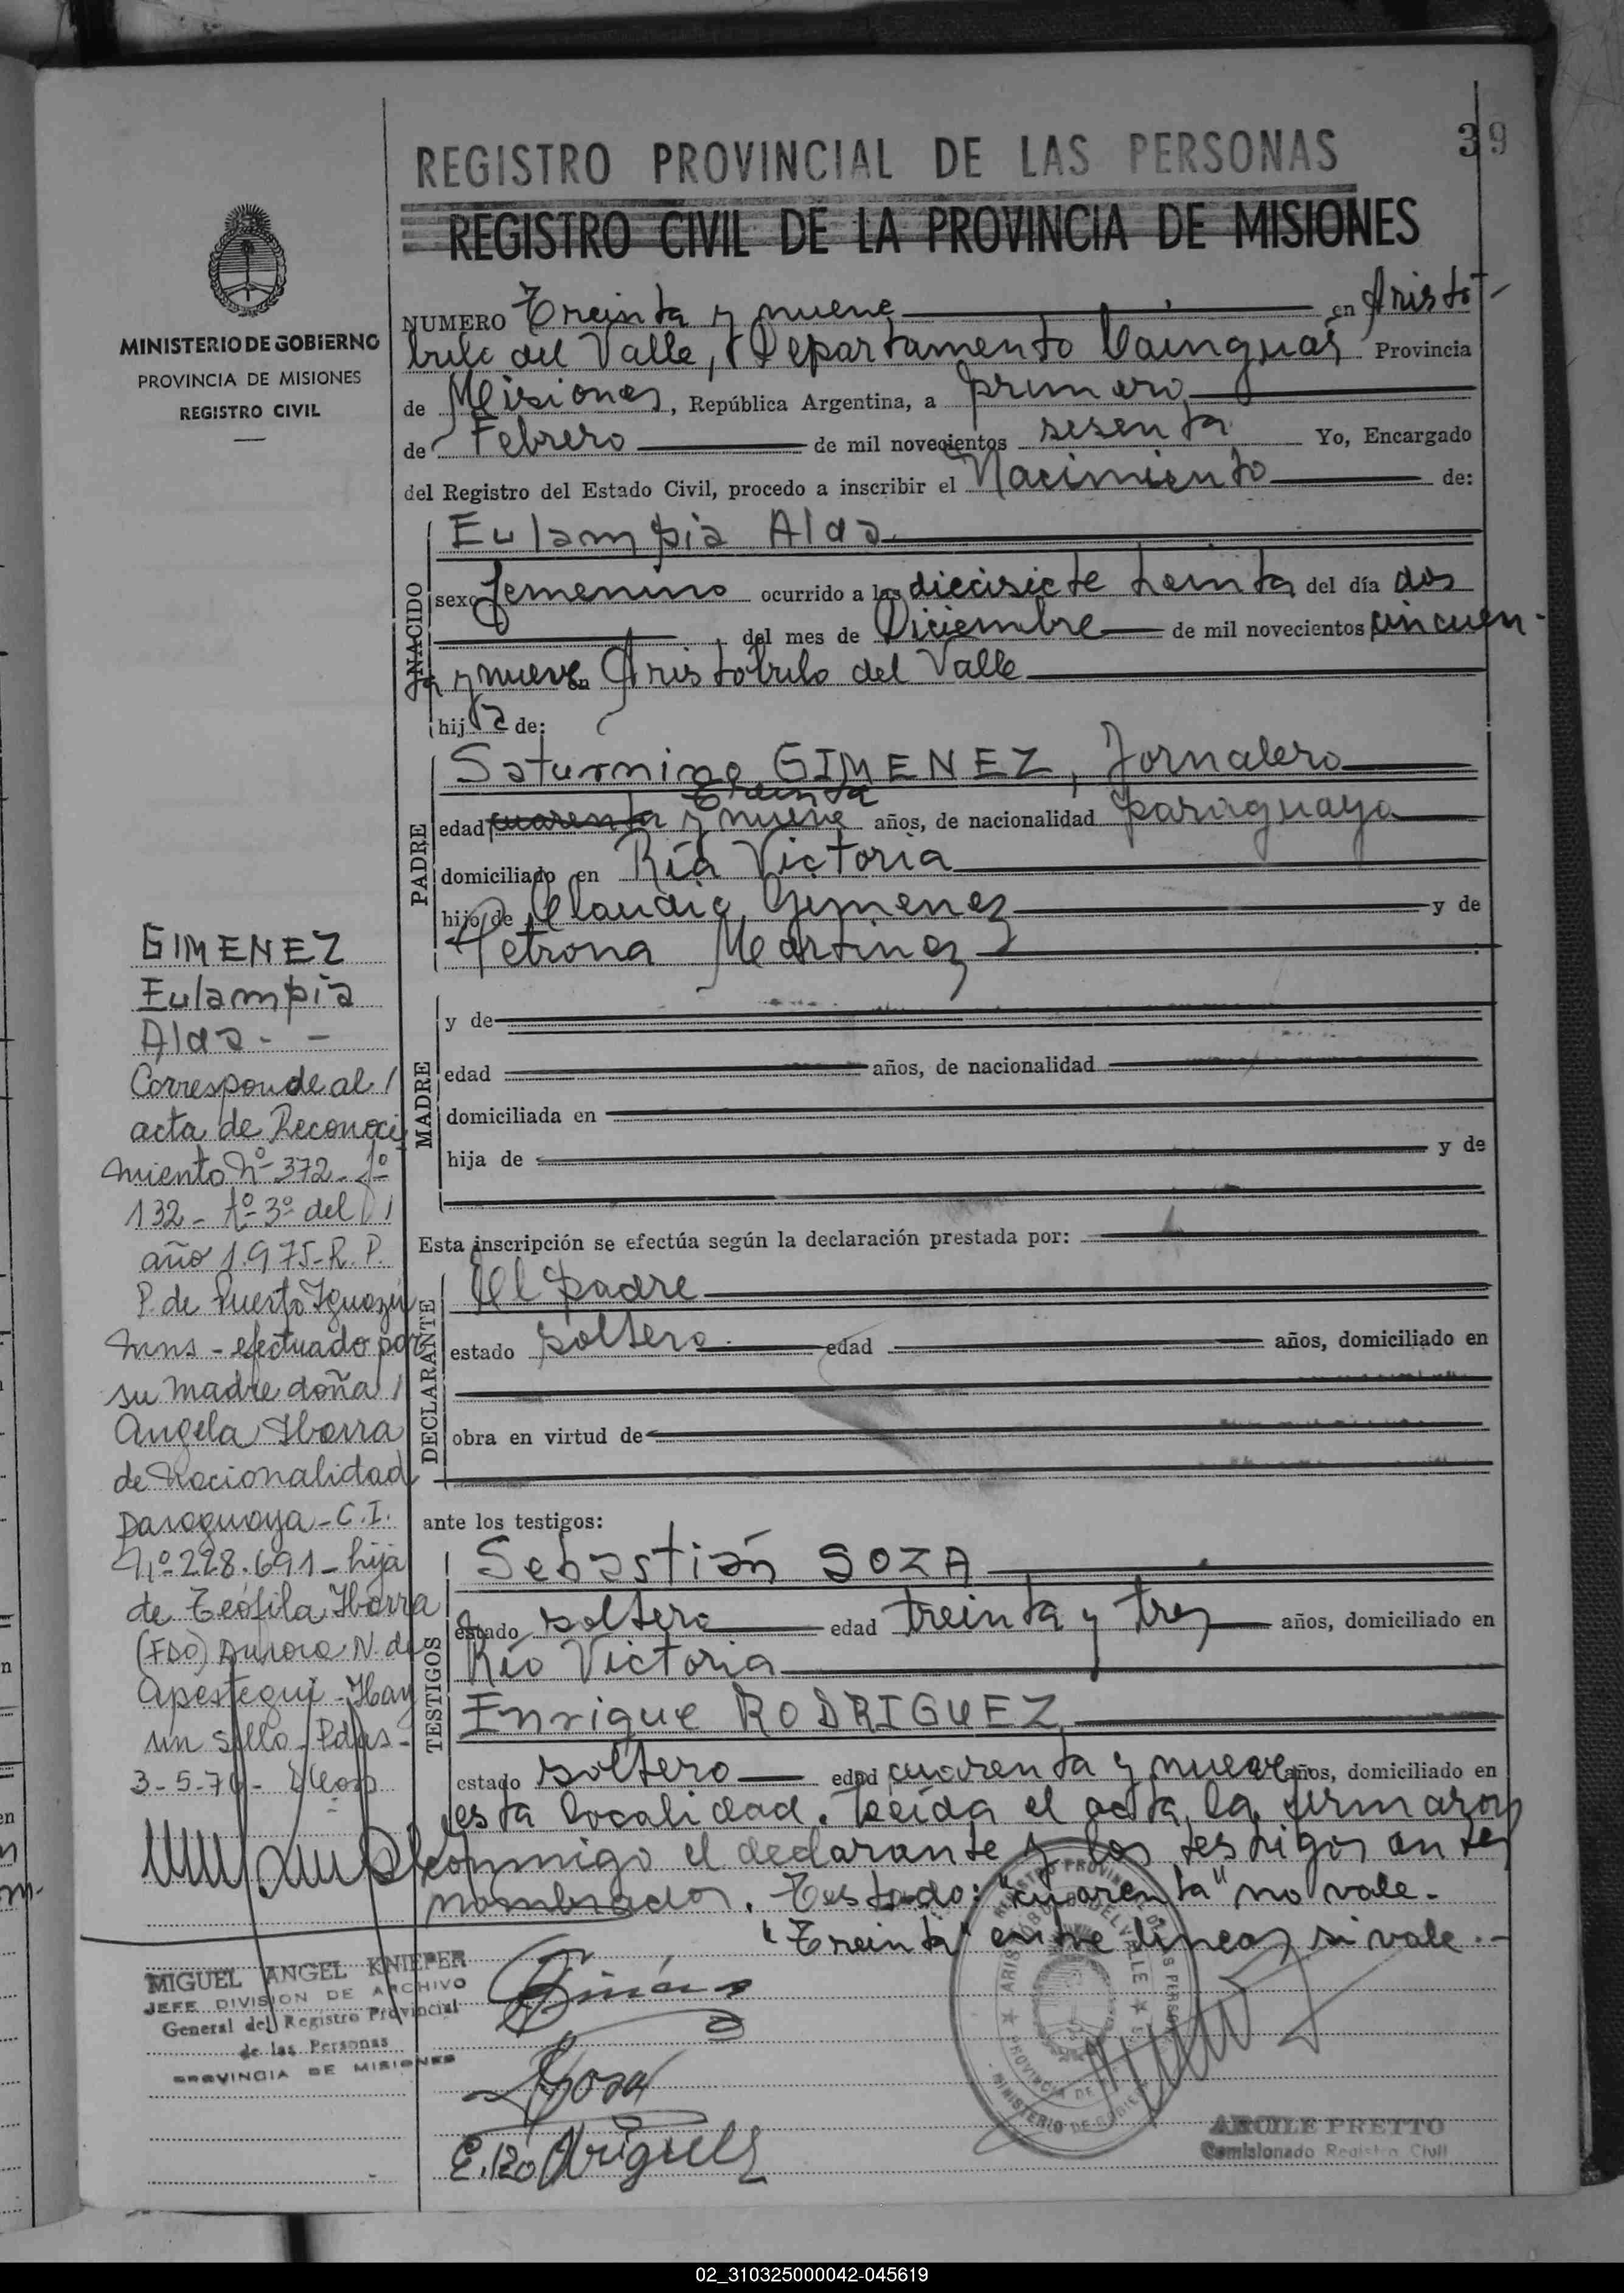 39
REGISTRO PROVINCIAL DE LAS PERSONAS
REGISTRO CIVIL DE LA PROVINCIA DE MISIONES
MINISTERIO DE GOBIERNO
PROVINCIA DE MISIONES
REGISTRO CIVIL
NUMERO Treinta y nueve en Aristó-
bulo del Valle, Departamento Cainguás Provincia
de Misiones, República Argentina, a primero
de Febrero de mil novecientos sesenta Yo, Encargado
del Registro del Estado Civil, procedo a inscribir el Nacimiento de:
NACIDO
Eulampia Alda
sexo femenino ocurrido a las diecisiete treinta del día dos
del mes de Diciembre de mil novecientos cincuen-
ta y nueve en Aristóbulo del Valle
hija de:
PADRE
Saturnino GIMENEZ, Jornalero
Treinta
edad cuarenta y nueve años, de nacionalidad paraguaya
domiciliado en Río Victoria
hijo de Claudio Gimenez y de
Petrona Martinez
MADRE
y de
edad años, de nacionalidad
domiciliada en
hija de y de
Esta inscripción se efectúa según la declaración prestada por:
DECLARANTE
El padre
estado soltero edad años, domiciliado en
obra en virtud de
ante los testigos:
TESTIGOS
Sebastián SOZA
estado soltero edad treinta y tres años, domiciliado en
Río Victoria
Enrique RODRIGUEZ
estado soltero edad cuarenta y nueve años, domiciliado en
esta localidad. Leída el acta, la firmaron
conmigo el declarante y los testigos antes
nombrados. Testado: "cuarenta" no vale.
"Treinta" entre líneas si vale.-
GIMENEZ
Eulampia
Alda - -
Corresponde al /
acta de Reconoci
miento Nº 372 - fº
132 - tº 3º del
año 1.975 - R. P.
P. de Puerto Iguazú
Mns - efectuado por
su madre doña /
Angela Ibarra
de nacionalidad
paraguaya - C.I.
Nº 228.691 - hija
de Teófila Ibarra
(FDO) Aurora N. de
Apestegui - Hay
un sello - Pdas -
3-5-76 -
MIGUEL ANGEL KNIEPER
JEFE DIVISION DE ARCHIVO
General del Registro Provincial
de las Personas
PROVINCIA DE MISIONES
Soza
E. Rodriguez
REGISTRO PROVINCIAL DE LAS PERSONAS
ARISTÓBULO DEL VALLE
PROVINCIA DE
MINISTERIO DE GOBIERNO
ARCILE PRETTO
Comisionado Registro Civil
02_310325000042-045619